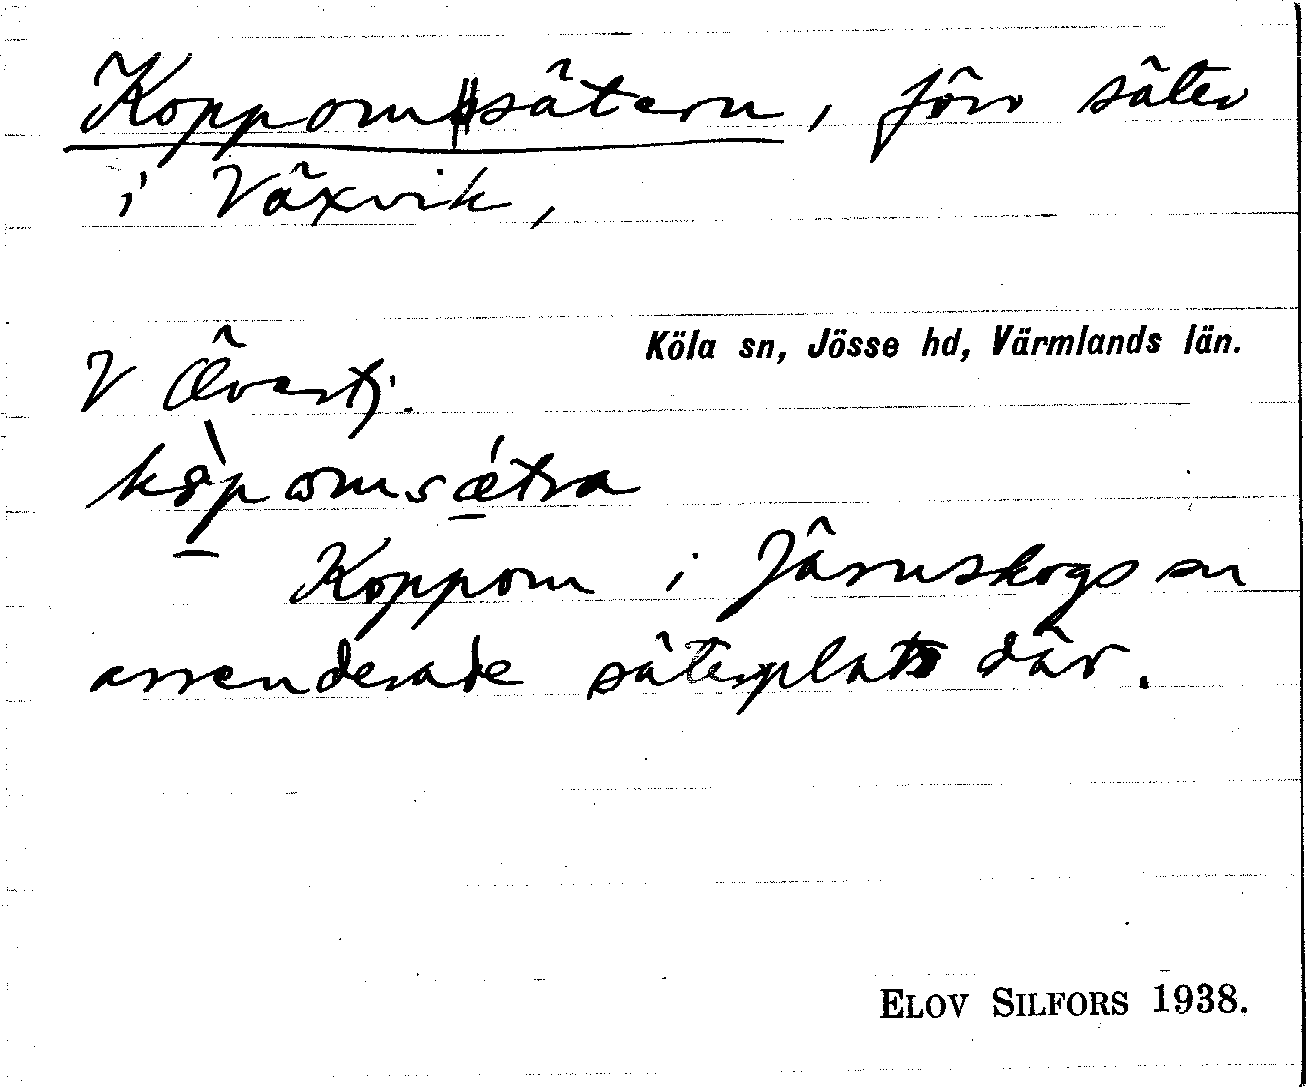 Koppomsätern, förr säter
i Växvik,
Köla sn, Jösse hd, Värmlands län.
V Övertj.
Koppom i Järnskogs sn
arrenderade säterplats där.
ELOV SILFORS 1938.